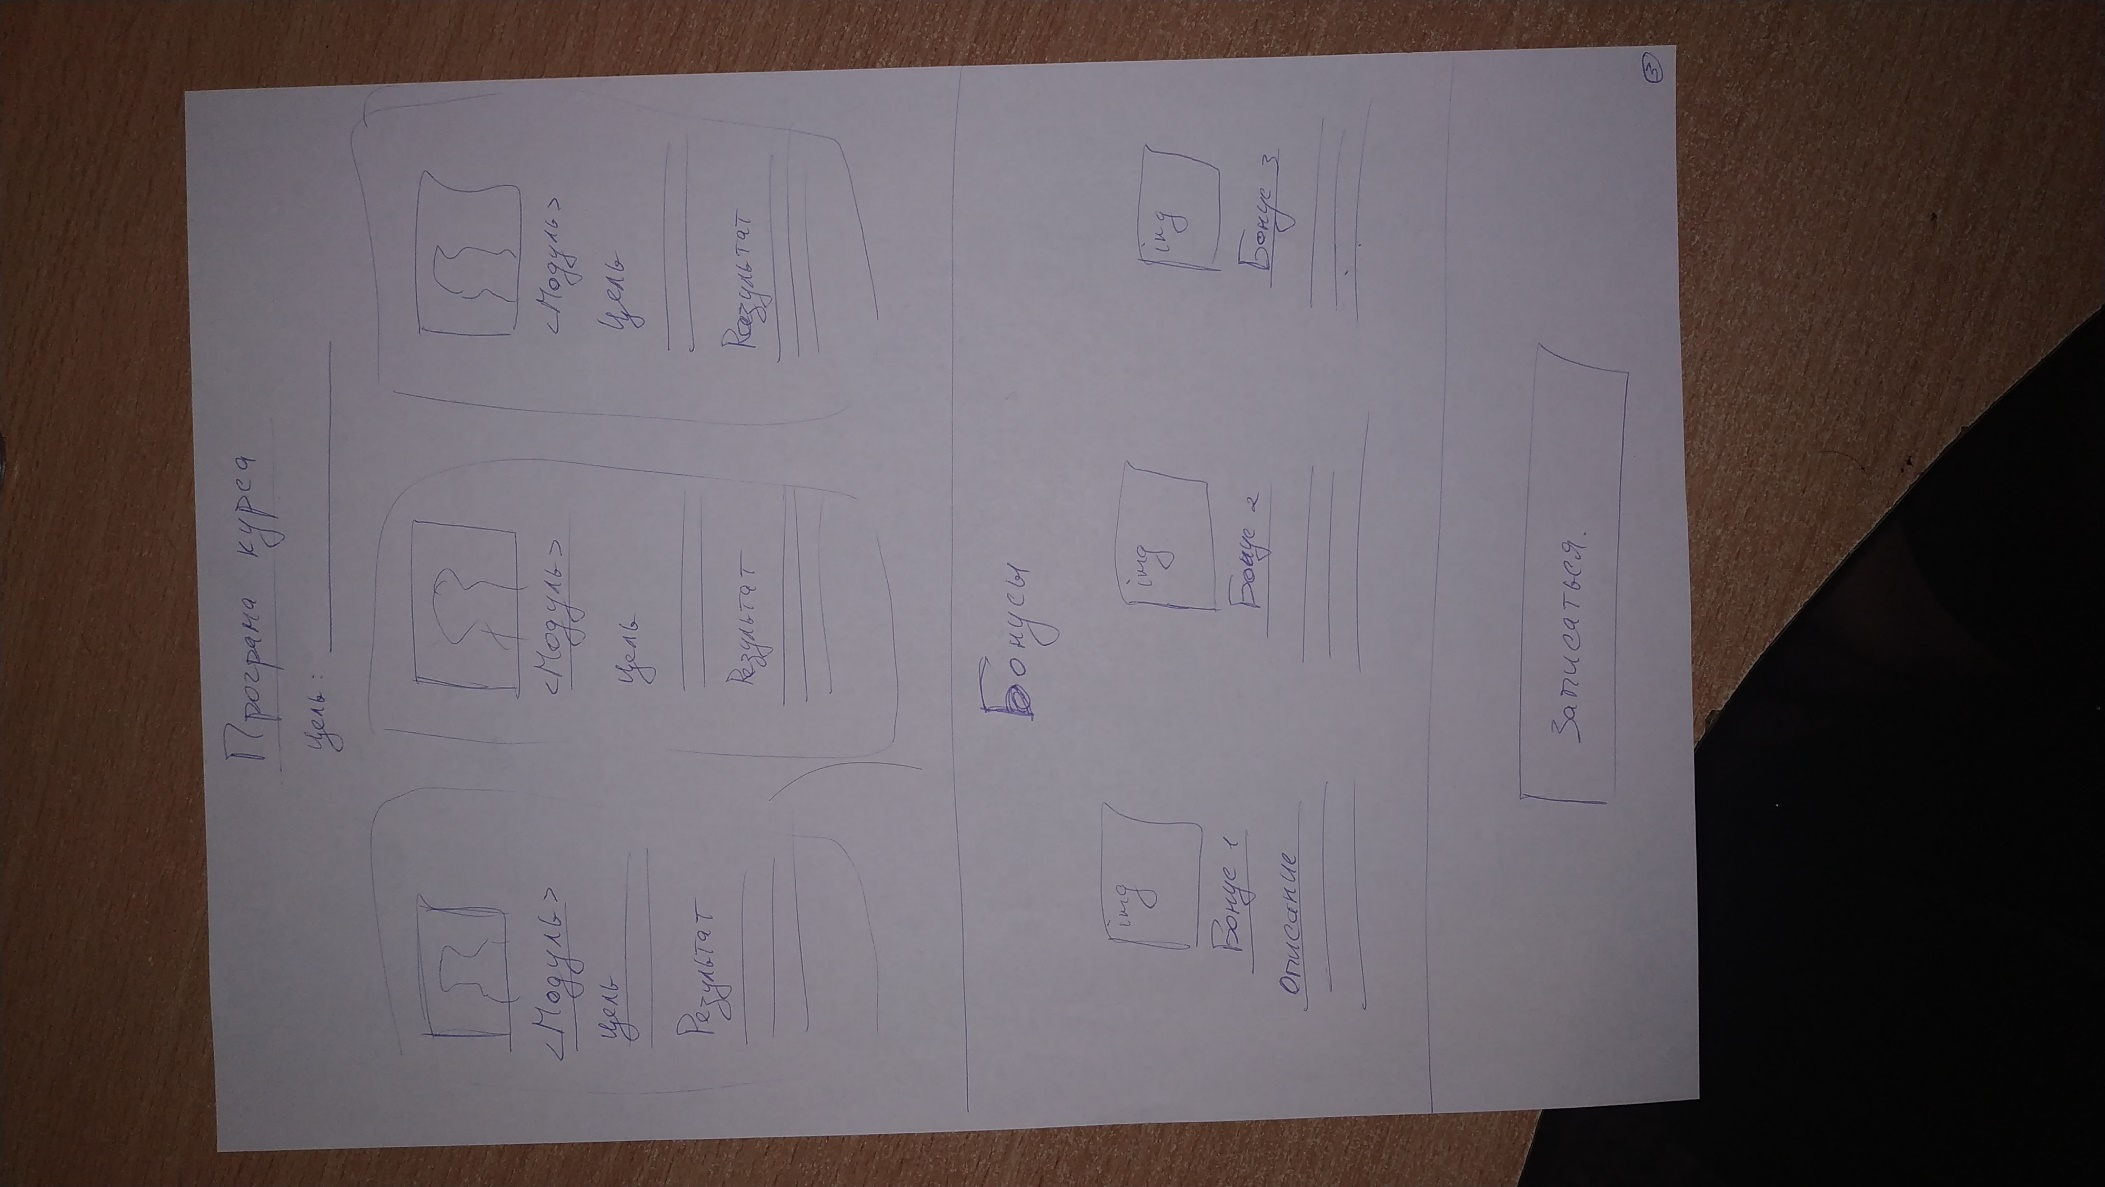 3
Програна курса
Цель:
<Модуль>
Цель
Результат
<Модуль>
Цель
Результат
<Модуль>
Цель
Результат
Бонусы
img
Бонус 1
Описание
img
Бонус 2
img
Бонус 3
Записаться.